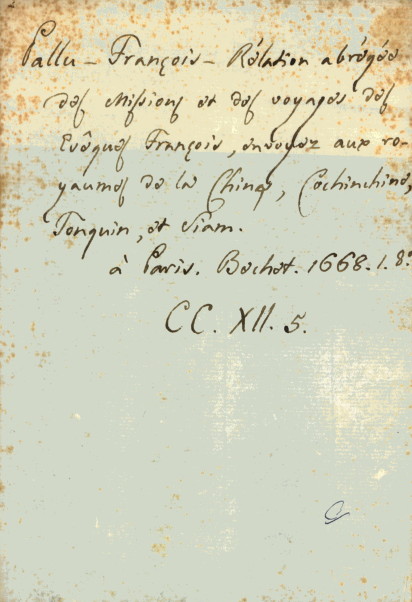 Pallu - François - Rélation abrégée
des Missions et des voyages des
Evêques François, envoyez aux ro-
yaumes de la Chine, Cochinchine,
Tonquin, et Siam.
à Paris. Bechet. 1668. 1. 8°
CC. XII. 5.